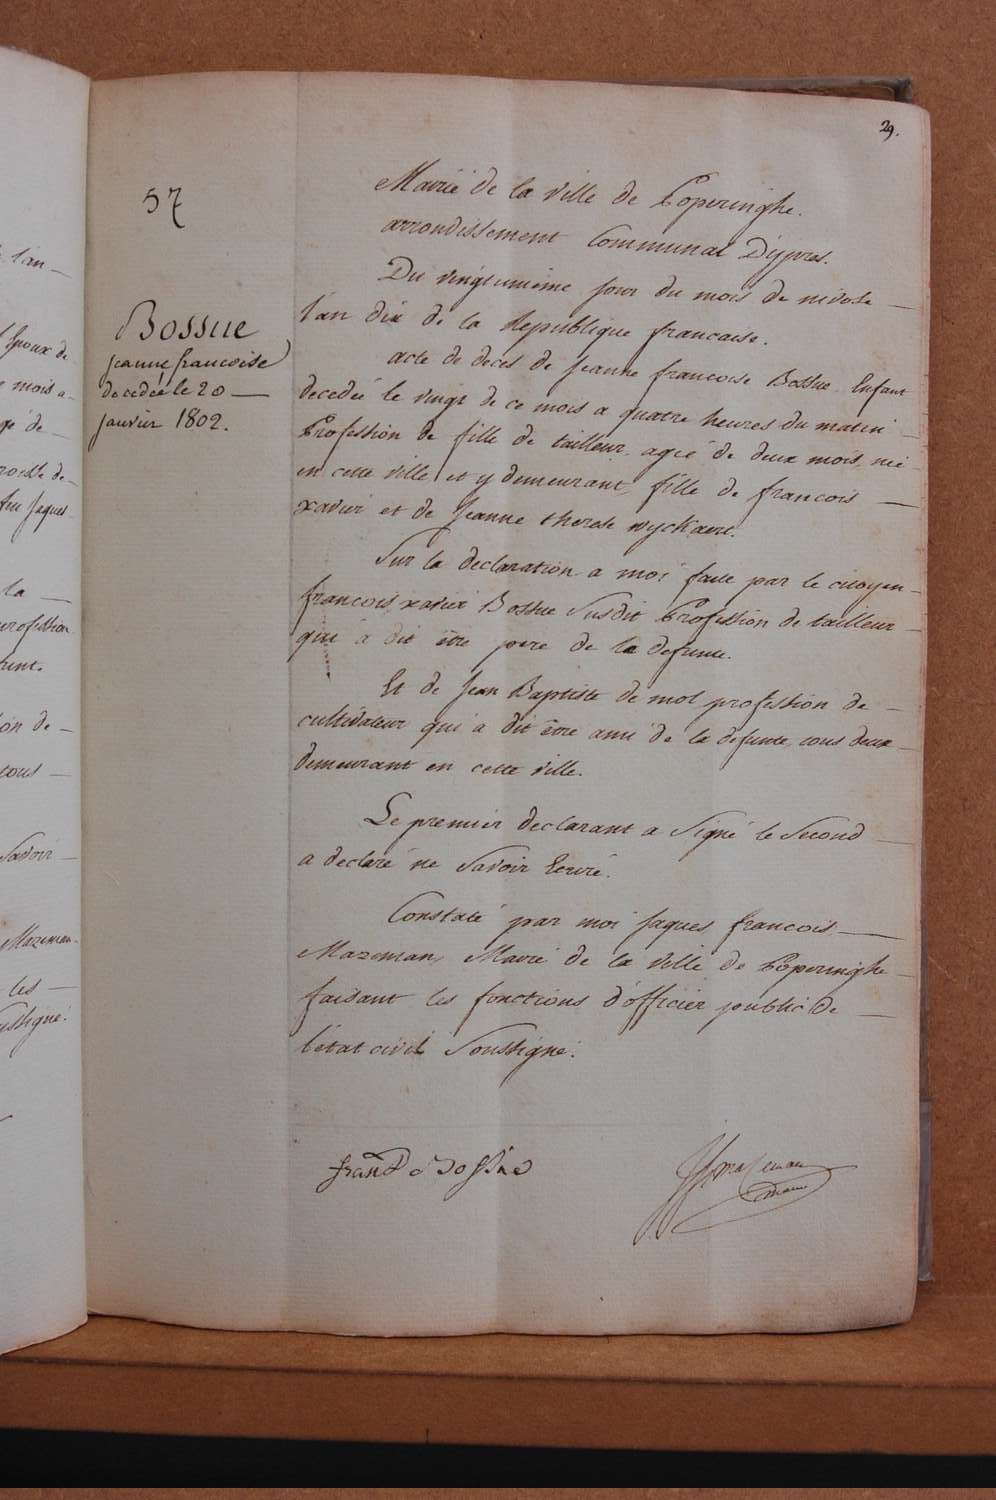 29.
57
Mairië de la ville de Poperinghe.
arrondissement Communal D'ypres.
Du vingtunieme jour du mois de nivose
l'an dix de la Republique francaise.
Bossue
jeanne francoise
decedée le 20
janvier 1802.
acte de deces de Jeanne francoise Bossue Enfant
decedeé le vingt de ce mois a quatre heures du matin
Profession de fille de tailleur, ageé de deux mois, neé
en cette ville et y demeurant, fille de francois
xavier et de Jeanne therese wyckaert.
Sur la declaration a moi faite par le citoyen
francois xavier Bossue Susdit Profession de tailleur
qui a dit être pere de la defunte.
Et de Jean Baptiste de mol profession de
cultivateur qui a dit être ami de la defunte, tous deux
demeurant en cette ville.
Le premier declarant a Signé le Second
a declaré ne Savoir Ecrire.
Constaté par moi Jaques francois
Mazeman, Maire de la ville de Poperinghe
faisant les fonctions d'officier public de
l'état civil Soussigné.
frans Bossue
JfMazeman
maire
l'an
Epoux de
mois a
gé de
roisse de
feu Jaques
la
profession
funt.
on de
tous
Savoir
Mazeman
les
ussigné.